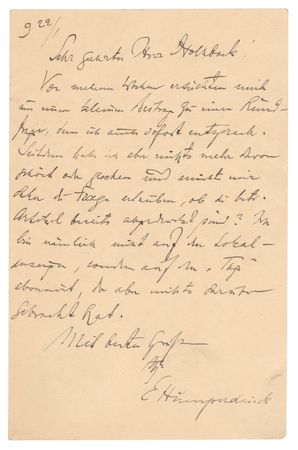 9 22/1
Sehr geehrter Herr Holzbock!
Vor mehreren Wochen ersuchten mich
um einen kleinen Beitrag für eine Rund-
frage, dem ich auch sofort entsprach.
Seitdem habe ich aber nichts mehr davon
gehört oder gesehen und möchte mir
die Frage erlauben, ob die
Artikel bereits abgedruckt sind? Ich
bin nämlich nicht auf den Lokal-
anzeiger, sondern auf den „Tag"
abonniert, der aber nichts darüber
gebracht hat.
Mit bestem Gruß
Ihr
EHumperdinck